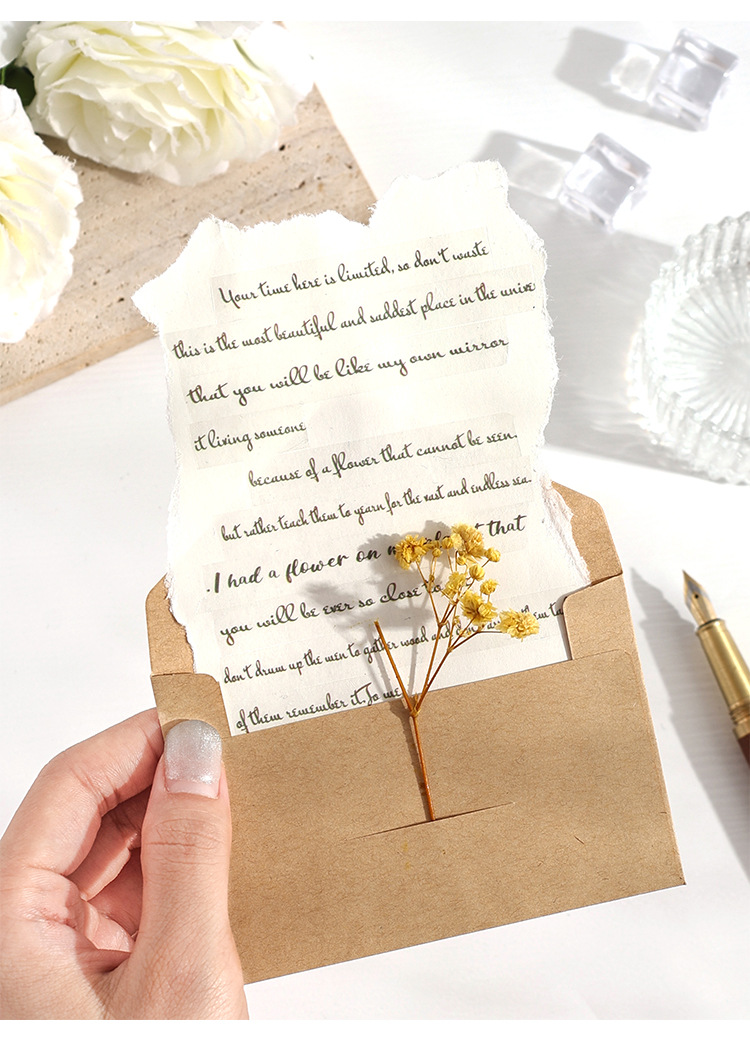 Your time here is limited, so don't waste
this is the most beautiful and saddest place in the unive
that you will be like my own mirror
it living someone
because of a flower that cannot be seen.
but rather teach them to yearn for the vast and endless sea.
.I had a flower on that
you will be ever so close to
don't drum up the men to gather wood and them to
of them remember it. Jo me